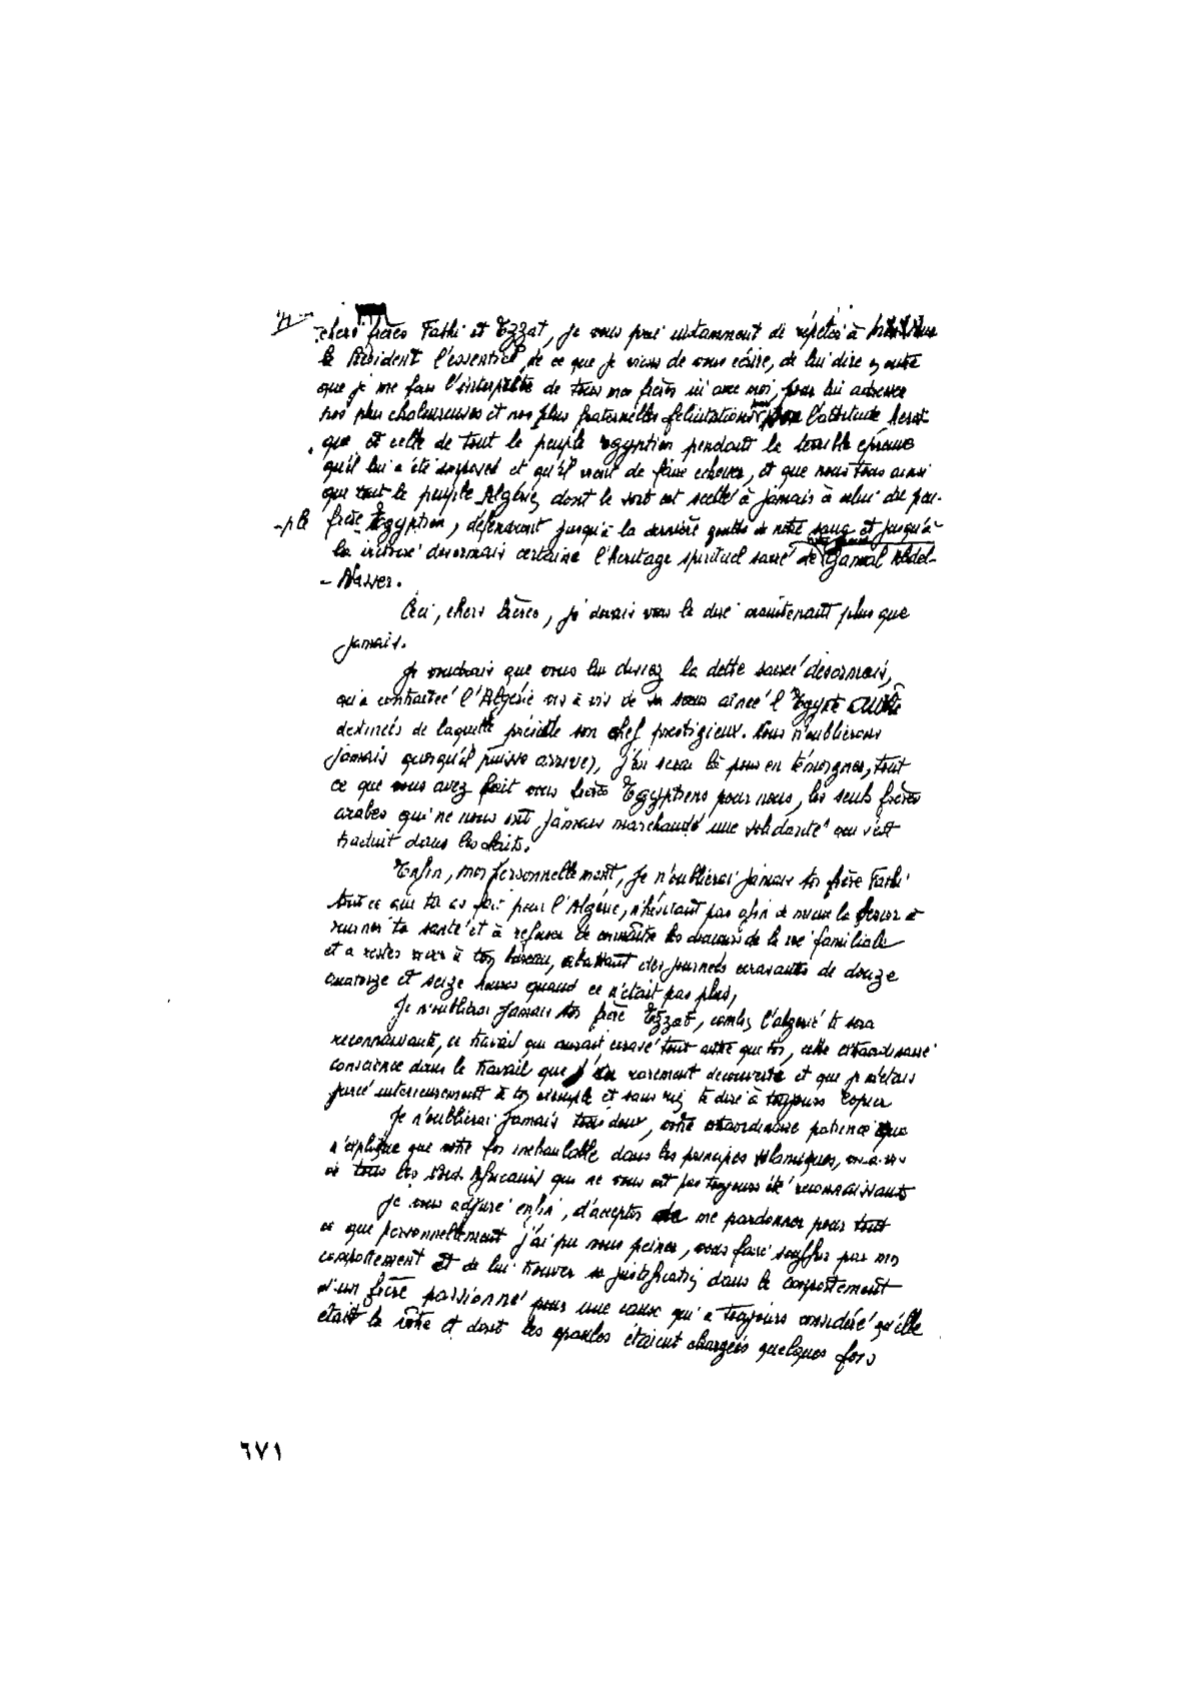 chers frères Fathi et Ezzat, je vous prie instamment de répéter à
le Président l'essentiel de ce que je viens de vous écrire, de lui dire en outre
que je me fais l'interprète de tous mes frères ici avec moi, pour lui adresser
nos plus chaleureuses et nos plus fraternelles félicitations pour l'attitude héroï-
que et celle de tout le peuple egyptien pendant la terrible épreuve
qu'il lui a été imposé et qu'il vient de faire echouer, et que nous tous ainsi
que tout le peuple Algérien dont le sort est scellé à jamais à celui du peu-
-ple frère Egyptien, défendront jusqu'à la dernière goutte de notre sang et jusqu'à
la victoire désormais certaine l'héritage spirituel sacré de Gamal Abdel-
- Nasser.
Ceci, chers frères, je devais vous le dire maintenant plus que
jamais.
Je voudrais que vous lui disiez la dette sacrée désormais,
qu'a contractée l'Algérie vis à vis de sa soeur ainée l'Egypte
destinées de laquelle préside son chef prestigieux. Nous n'oublierons
jamais quoiqu'il puisse arriver, j'en serai là pour en témoigner, tout
ce que vous avez fait vous frères Egyptiens pour nous, les seuls frères
arabes qui ne nous ont jamais marchandé une solidarité qui s'est
traduit dans les faits.
Enfin, moi personnellement, je n'oublierai jamais toi frère Fathi
tout ce que tu as fait pour l'Algérie, n'hésitant pas afin de mieux la servir à
ruiner ta santé et à refuser de connaître les douceurs de la vie familiale
et a rester rivé à ton bureau, abattant des journées ecrasantes de douze
quatorze et seize heures quand ce n'était pas plus,
Je n'oublierai jamais toi frère Ezzat, combien l'algerie te sera
reconnaissante, ce travail qui aurait ecrasé tout autre que toi, cette extraordinaire
conscience dans le travail que j'ai rarement decouverte et que je m'étais
forcé interieurement à ton exemple et sans rien te dire à toujours copier
Je n'oublierai jamais tous deux, votre extraordinaire patience que
n'explique que votre foi inebranlable dans les principes islamiques, vis-à-vis
de tous les Nord Africains qui ne vous ont pas toujours été reconnaissants
Je vous adjure enfin, d'accepter de me pardonner pour tout
ce que personnellement j'ai pu vous peiner, vous faire souffrir par mon
comportement et de lui trouver sa justification dans le comportement
d'un frère passionné pour une cause qui a toujours considéré qu'elle
était la vôtre et dont les épaules étaient chargées quelques fois
٦٧١